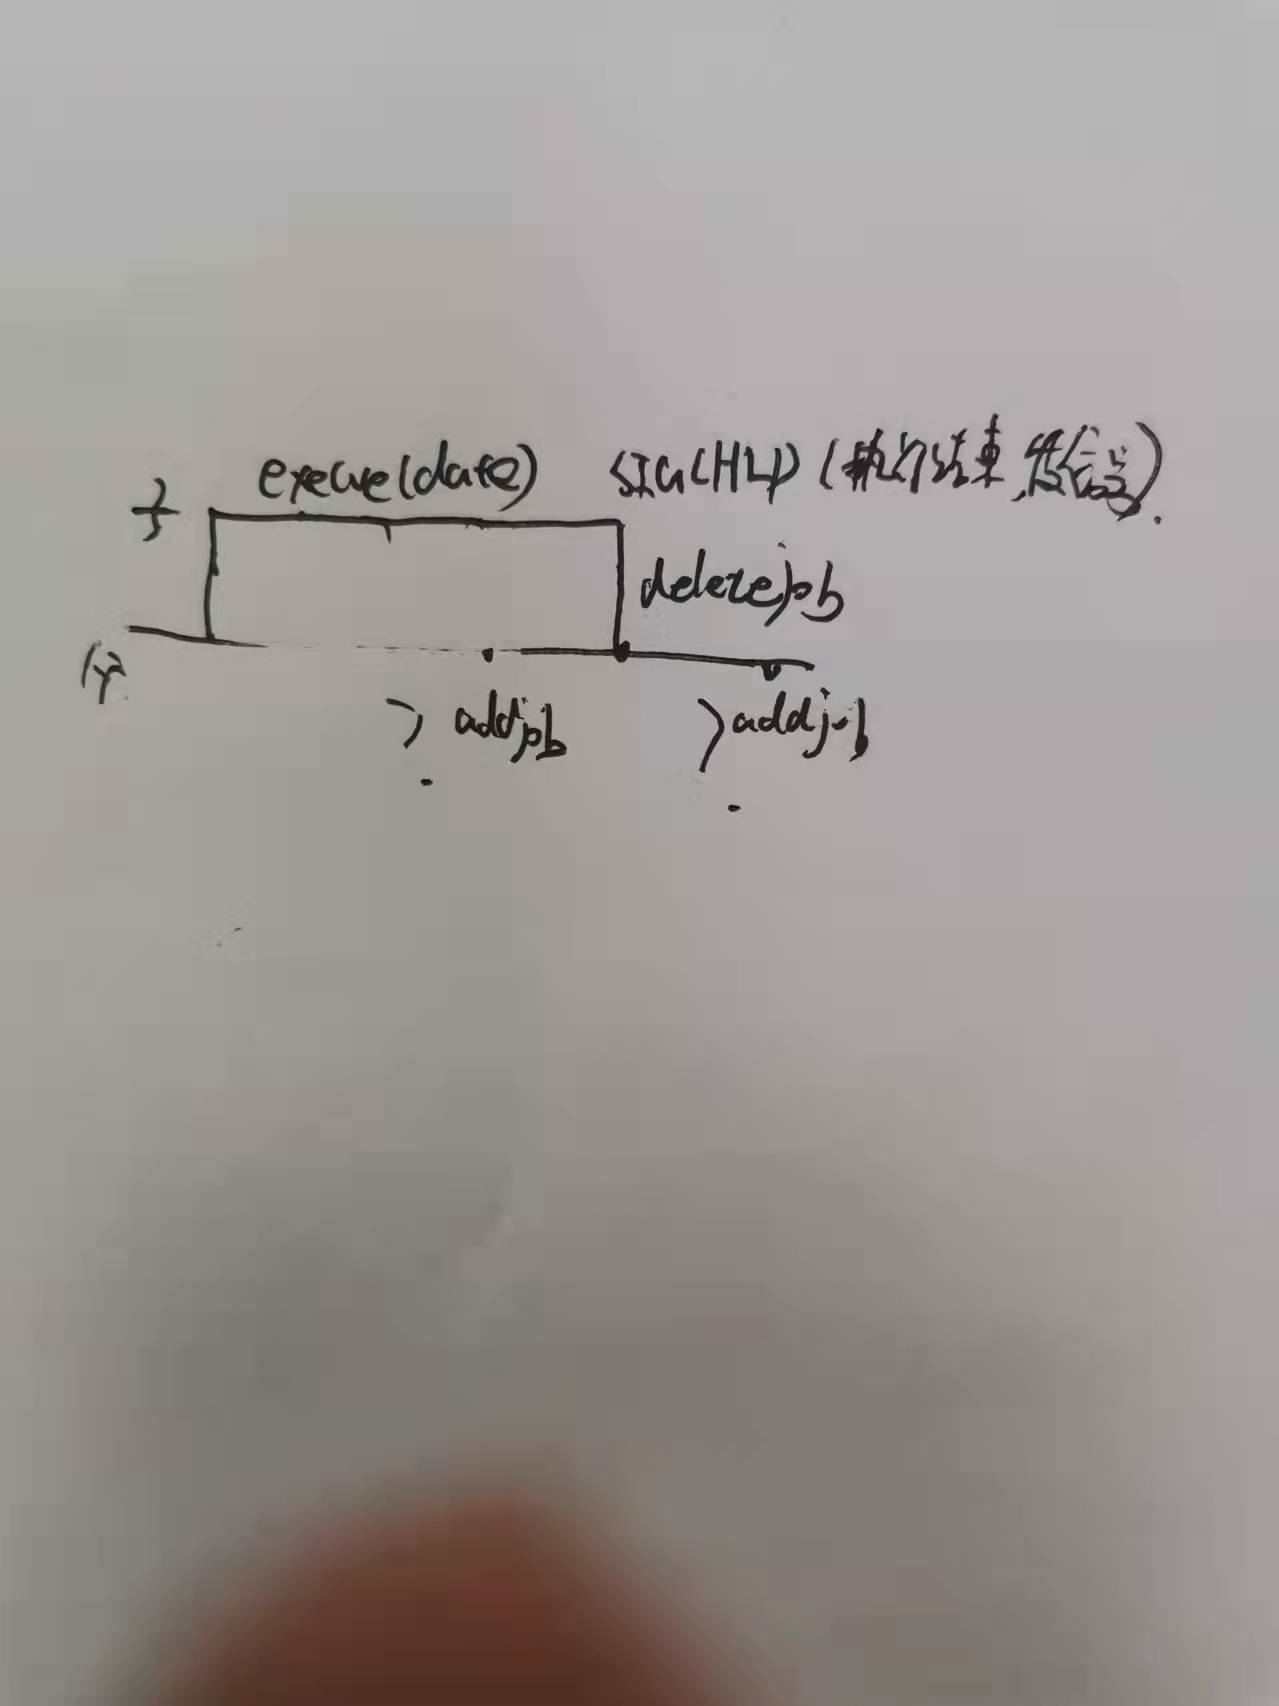 execve(date) SIGCHLD (执行结束,发信号).
子
deletejob
父
? addjob ? addjob